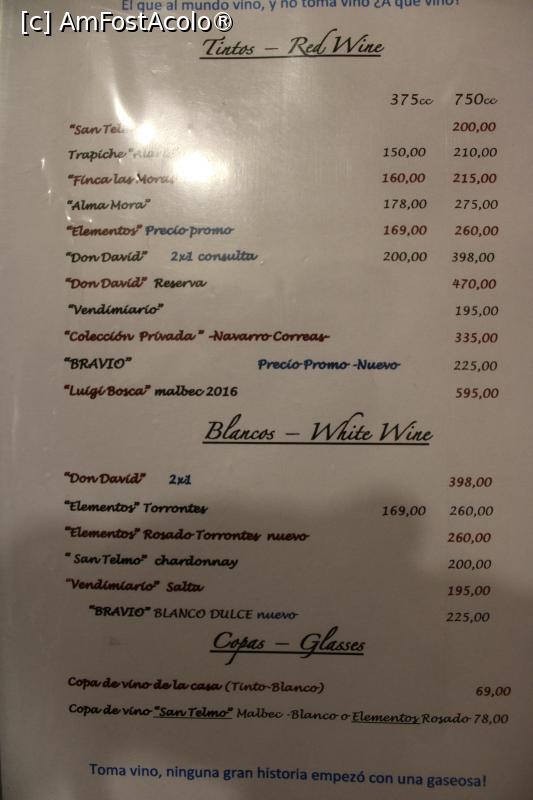 El que al mundo vino, y no toma vino ¿A que vino?
[c] AmFostAcolo®
Tintos – Red Wine
375cc 750cc
"San Tel 200,00
Trapiche 150,00 210,00
"Finca las Moras 160,00 215,00
"Alma Mora" 178,00 275,00
"Elementos" Precio promo 169,00 260,00
"Don David" 2x1 consulta 200,00 398,00
"Don David" Reserva 470,00
"Vendimiario" 195,00
"Colección Privada" -Navarro Correas- 335,00
"BRAVIO" Precio Promo -Nuevo 225,00
"Luigi Bosca" malbec 2016 595,00
Blancos – White Wine
"Don David" 2x1 398,00
"Elementos" Torrontes 169,00 260,00
"Elementos" Rosado Torrontes nuevo 260,00
" San Telmo" chardonnay 200,00
"Vendimiario" Salta 195,00
"BRAVIO" BLANCO DULCE nuevo 225,00
Copas – Glasses
Copa de vino de la casa (Tinto-Blanco) 69,00
Copa de vino "San Telmo" Malbec -Blanco o Elementos Rosado 78,00
Toma vino, ninguna gran historia empezó con una gaseosa!